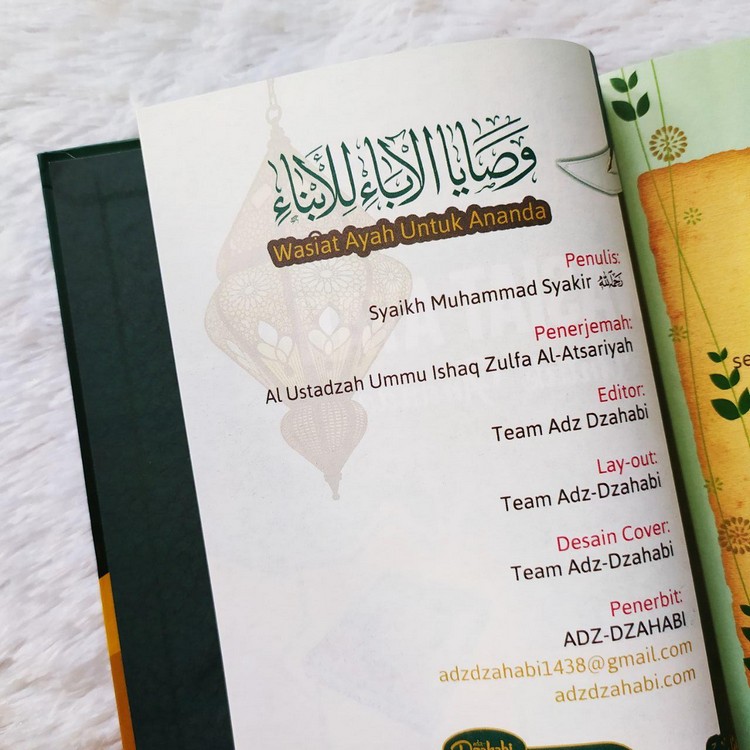 وَصَايَا الْآبَاءِ لِلْأَبْنَاءِ
Wasiat Ayah Untuk Ananda
Penulis:
Syaikh Muhammad Syakir رَحِمَهُ اللهُ
Penerjemah:
Al Ustadzah Ummu Ishaq Zulfa Al-Atsariyah
Editor:
Team Adz Dzahabi
Lay-out:
Team Adz-Dzahabi
Desain Cover:
Team Adz-Dzahabi
Penerbit:
ADZ-DZAHABI
adzdzahabi1438@gmail.com
adzdzahabi.com